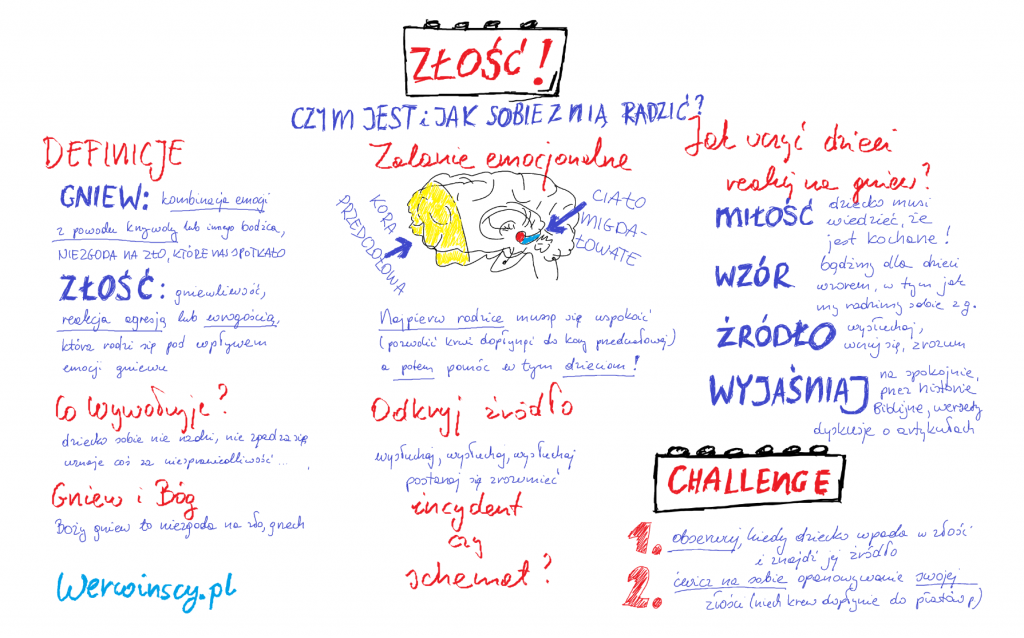 ZŁOŚĆ!
CZYM JEST i JAK SOBIE Z NIĄ RADZIĆ?
DEFINICJE
GNIEW: kombinacja emocji
z powodu krzywdy lub innego bodźca,
NIEZGODA NA ZŁO, KTÓRE NAS SPOTKAŁO
ZŁOŚĆ: gniewliwość,
reakcja agresją lub wrogością,
która rodzi się pod wpływem
emocji gniewu
Co wywołuje?
dziecko sobie nie radzi, nie zgadza się,
uznaje coś za niesprawiedliwość...
Gniew i Bóg
Boży gniew to niezgoda na zło, grzech
Werwinscy.pl
Zalanie emocjonalne
KORA
PRZEDCZOŁOWA
CIAŁO
MIGDA-
ŁOWATE
Najpierw rodzice muszą się uspokoić
(pozwolić krwi dopłynąć do kory przedczołowej)
a potem pomóc w tym dzieciom!
Odkryj źródło
wysłuchaj, wysłuchaj, wysłuchaj
postaraj się zrozumieć
incydent
czy
schemat?
Jak uczyć dzieci
reakcji na gniew?
MIŁOŚĆ dziecko musi
wiedzieć, że
jest kochane!
WZÓR bądźmy dla dzieci
wzorem, w tym jak
my radzimy sobie z g.
ŹRÓDŁO wysłuchaj,
wczuj się, zrozum
WYJAŚNIAJ na spokojnie,
przez historie
Biblijne, wersety
dyskusje o artykułach
CHALLENGE
1. obserwuj, kiedy dziecko wpada w złość
i znajdź jej źródło
2. ćwicz na sobie opanowywanie swojej
złości (niech krew dopłynie do płatów p)